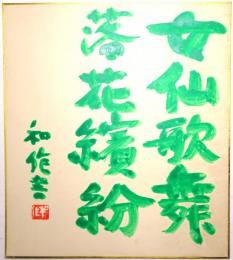 女仙歌舞
落花繽紛
和作書